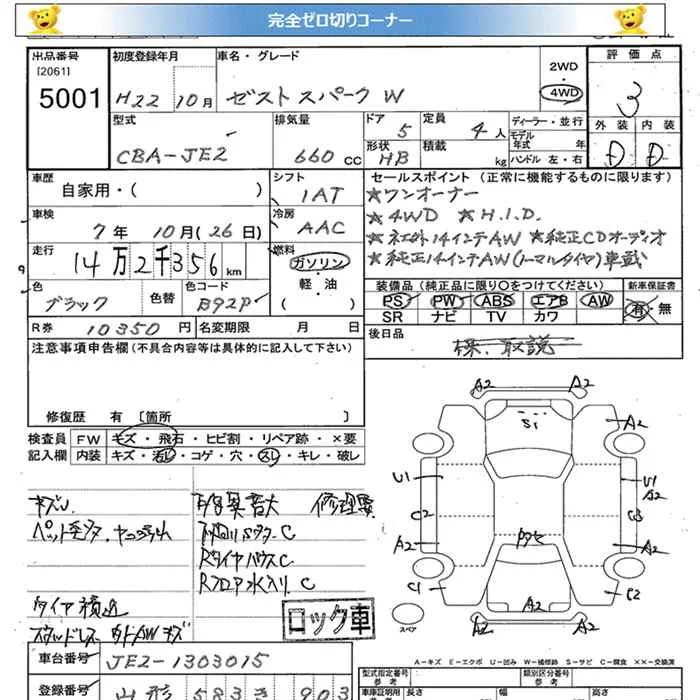 完全ゼロ切りコーナー
出品番号 [2061] 5001
初度登録年月 H22 10月
車名・グレード ゼスト スパーク W
2WD・4WD
評価点 3
外装 D 内装 D
型式 CBA-JE2
排気量 660 CC
ドア 5 形状 HB
定員 4人 積載 kg
ディーラー・並行
モデル年式 年
ハンドル 左・右
車歴 自家用・( )
シフト 1AT
車検 7年 10月(26日)
冷房 AAC
走行 14万2千356km
燃料 ガソリン・軽・油 ( )
色 ブラック 色替 色コード B92P
R券 10350円 名変期限 月 日
セールスポイント (正常に機能するものに限ります)
★ワンオーナー
★4WD ★H.I.D.
★社外14インチAW ★純正CDオーディオ
★純正14インチAW(ノーマルタイヤ)車載
装備品(純正品に限り〇をつけてください) 新車保証書
PS PW ABS エアB AW 有・無
SR ナビ TV カワ
後日品 保、取説
注意事項申告欄(不具合内容等は具体的に記入して下さい)
修復歴 有 [箇所 ]
検査員 FW キズ・飛石・ヒビ割・リペア跡・×要
記入欄 内装 キズ・汚レ・コゲ・穴・スレ・キレ・破レ
キズ
下回りサビ C
Rタイヤハウス C
Rフロア水入り C
タイヤ積込
スタッドレス
ロック車
A2 A2
S1
A2
U1 U1 A2
C2 C3
A2 A2
C1 C2
A2
A2 A2
スペア
A-キズ E-エクボ U-凹み W-補修跡 S-サビ C-腐食 ××-交換済
車台番号 JE2-1303015
登録番号 山形 583 き 903
型式指定番号 参考
類別区分番号 参考
車庫証明用 長さ 幅 高さ